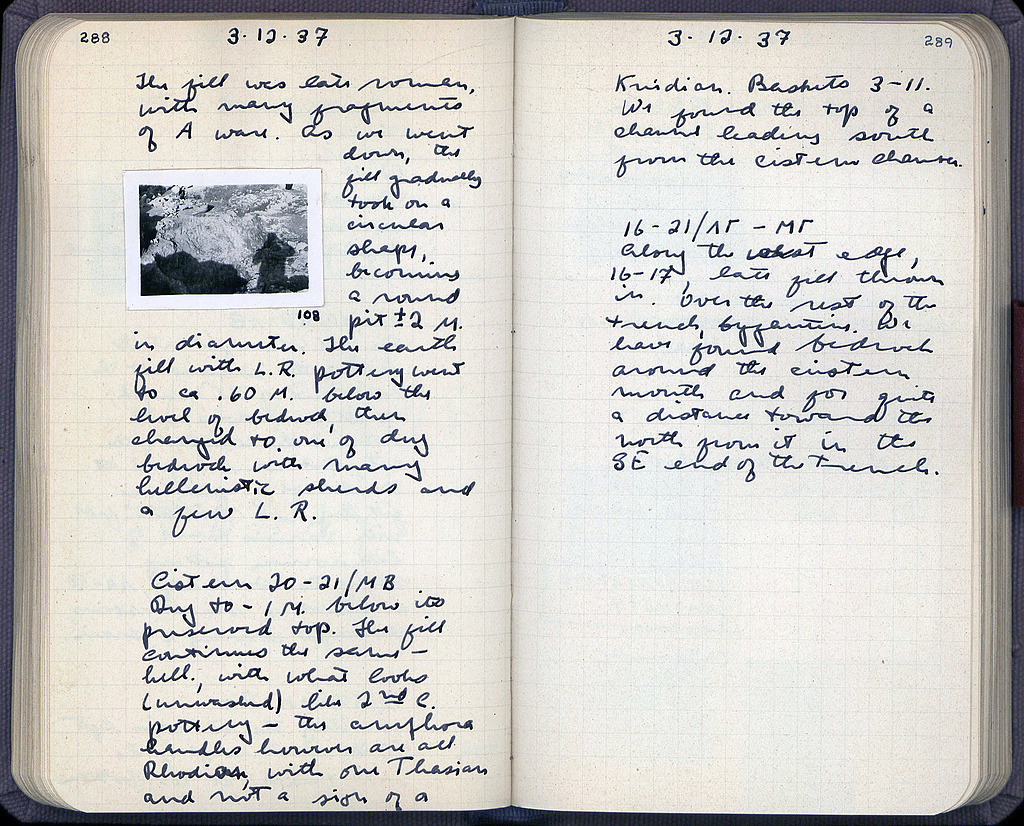 288
3·12·37
The fill was late roman,
with many fragments
of A ware. As we went
down, the
fill gradually
took on a
circular
shape,
becoming
a round
pit ± 2 M.
108
in diameter. The earth
fill with L.R. pottery went
to ca .60 M. below the
level of bedrock, then
changed to one of dug
bedrock with many
hellenistic sherds and
a few L. R.
Cistern 20-21/MB
Dug to -1 M. below its
preserved top. The fill
continues the same —
hell., with what looks
(unwashed) like 2nd C.
pottery — the amphora
handles however are all
Rhodian, with one Thasian
and not a sign of a
3·12·37
289
Knidian. Baskets 3-11.
We found the top of a
channel leading south
from the cistern chamber.
16-21/ΛΓ - ΜΓ
Along the west edge,
16-17, late fill thrown
in. Over the rest of the
trench, byzantine. We
have found bedrock
around the cistern
mouth and for quite
a distance toward the
north from it in the
SE end of the trench.